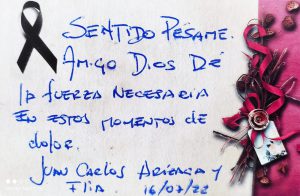 SENTIDO PÉSAME.
AMIGO DIOS DÉ
la fuerza NECESARIA
EN ESTOS MOMENTOS DE
dolor.
JUAN CARLOS ARIZAGA Y
Flia. 16/07/22